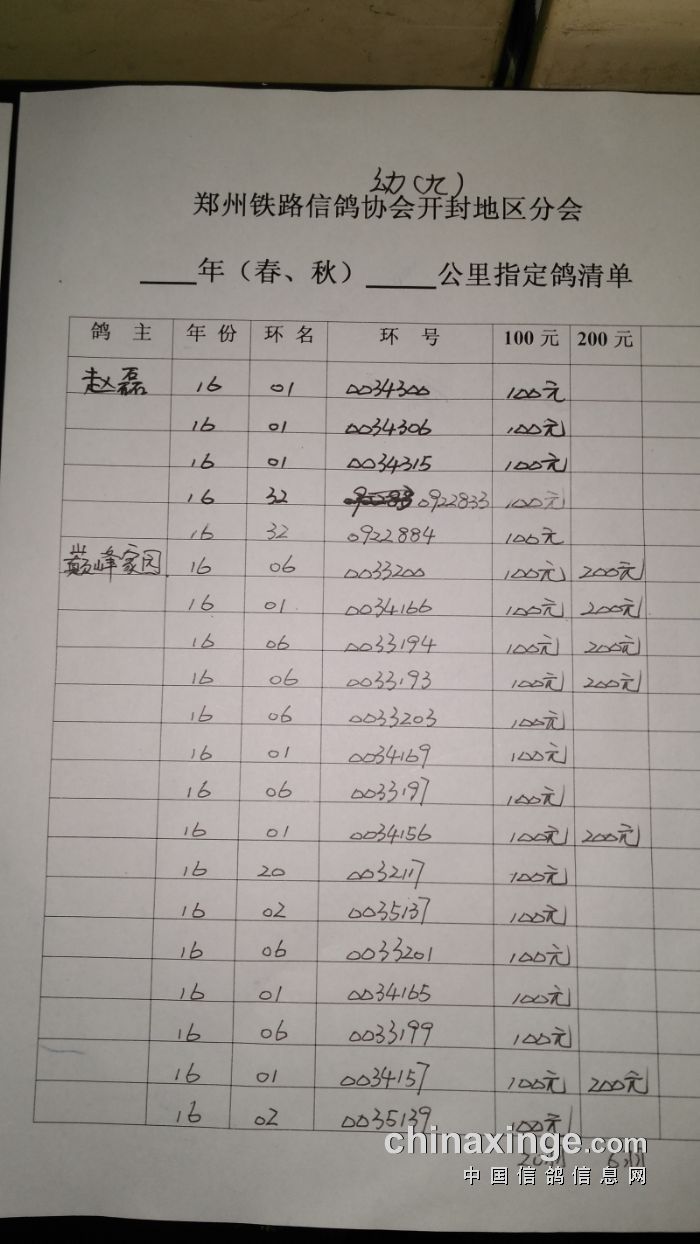 幼(九)
郑州铁路信鸽协会开封地区分会
年（春、秋）公里指定鸽清单
鸽 主 年 份 环 名 环 号 100 元 200 元
赵磊 16 01 0034300 100元
16 01 0034306 100元
16 01 0034315 100元
16 32 0922833 100元
16 32 0922884 100元
巅峰家园 16 06 0033200 100元 200元
16 01 0034166 100元 200元
16 06 0033194 100元 200元
16 06 0033193 100元 200元
16 06 0033203 100元
16 01 0034169 100元
16 06 0033197 100元
16 01 0034156 100元 200元
16 20 0032117 100元
16 02 0035137 100元
16 06 0033201 100元
16 01 0034165 100元
16 06 0033199 100元
16 01 0034157 100元 200元
16 02 0035139 100元
chinaxinge.com
中国信鸽信息网